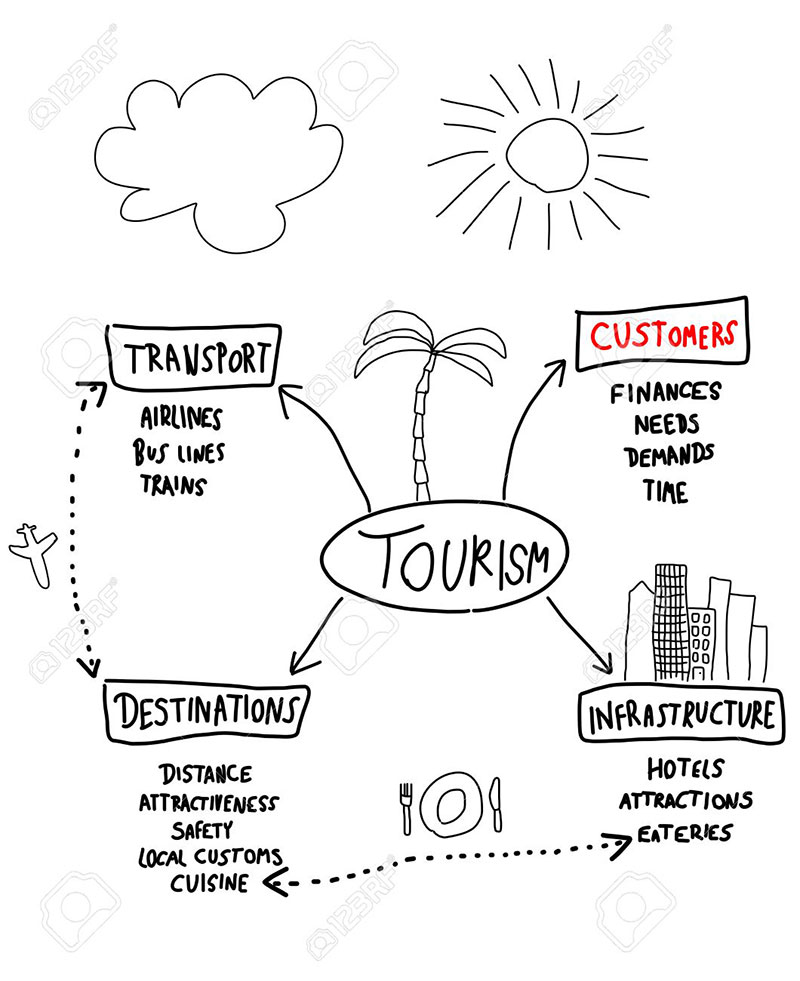 TRANSPORT
AIRLINES
BUS LINES
TRAINS
CUSTOMERS
FINANCES
NEEDS
DEMANDS
TIME
TOURISM
DESTINATIONS
DISTANCE
ATTRACTIVENESS
SAFETY
LOCAL CUSTOMS
CUISINE
INFRASTRUCTURE
HOTELS
ATTRACTIONS
EATERIES
123RF
123RF
123RF
123RF
123RF
123RF
123RF